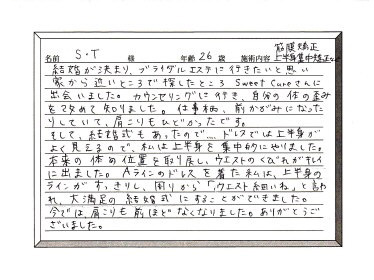 名前 S・T 様 年齢 26 歳 施術内容 筋膜矯正 上半身集中矯正など
結婚が決まり、ブライダルエステに行きたいと思い
家から近いところで探したところ Sweet Cureさんに
出会いました。カウンセリングに行き、自分の体の歪み
を改めて知りました。仕事柄、前かがみになった
りしていて、肩こりもひどかったです。
そして、結婚式もあったので…、ドレスでは上半身が
よく見えるので、私は上半身を集中的にやりました。
本来の体の位置を取り戻し、ウエストのくびれがキレイ
に出ました。Aラインのドレスを着た私は、上半身の
ラインがすっきりし、周りから「ウエスト細いね」と言わ
れ、大満足の結婚式にすることができました。
今では、肩こりも前ほどなくなりました。ありがとうご
ざいました。